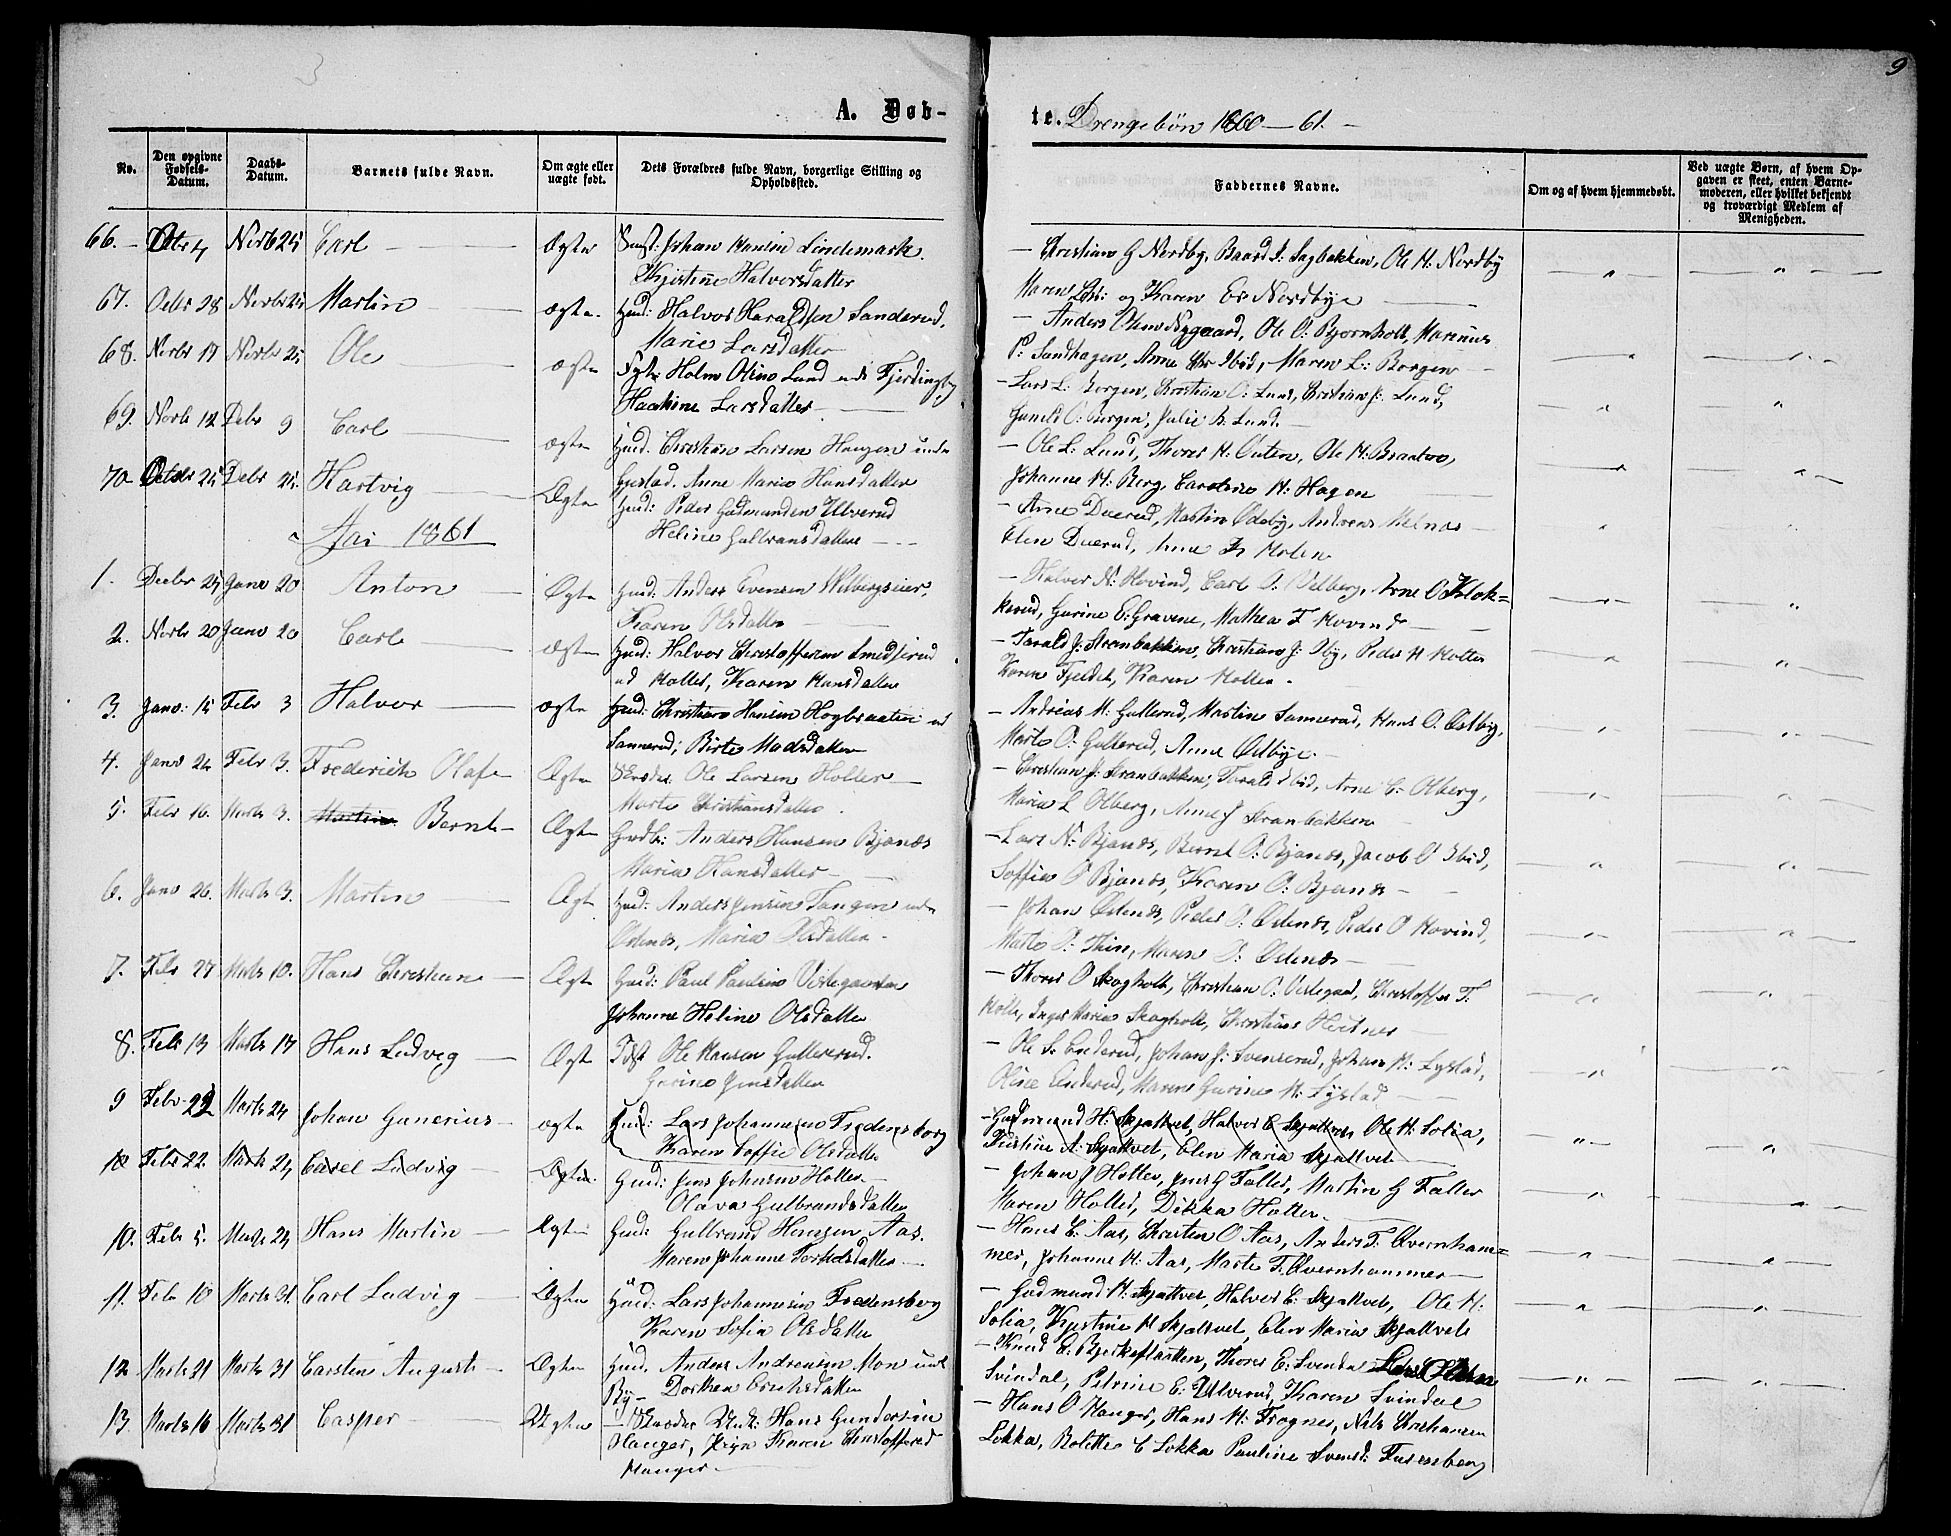 9
A. Døb-
te. Drengebön 1860-61.-
No.
Den opgivne Fødsels-Datum.
Daabs-Datum.
Barnets fulde Navn.
Om ægte eller uægte født.
Dets Forældres fulde Navn, borgerlige Stilling og Opholdssted.
Faddernes Navne.
Om og af hvem hjemmedøbt.
Ved uægte Børn, af hvem Opgaven er skeet, enten Barnemoderen, eller hvilket bekjendt og troværdigt Medlem af Menigheden.
66. Novbr 25 Carl Ægte Johan Hansen Lindemark.
Kjistine Halvorsdatter
- Christian G Nordby, Baard S. Sagbakken, Ole H: Nordby
Maren og Karen Nordbye
67. Octbr 28 Novbr 25 Martin ægte. Huusf: Halvor Haraldsen Sanderud,
Marie Larsdatter
- Anders Nygaard, Ole O: Bjornholt, Marenius
P: Sandhagen, Anne Ibid, Maren L: Borgen
68. Novbr 19 Novbr 25 Ole ægte Holm Olsen Lund Fjerdingby
Larsdatter
- Lars L: Borgen, Christian O: Lund, Christian J: Lund,
Gunild O: Borgen, Julie B. Lund
69. Novbr 12 Debr 9 Carl ægte Huusf: Christian Larsen Haugen under
Gustad. Anne Marie Hansdatter
- Ole L: Lund, Thorer H: Outen, Ole H: Braaten,
Johanne H: Berg, H: Hagen
70 Octbr 25 Debr 25. Hartvig Ægte Huusf: Peder Gudmundsen Ulverud
Heline Gulbransdatter
- Arne Duerud, Martin Ødeby, Andreas Melnæs
Elen Duerud, Anne Molen
Aar 1861
1. Decbr 25 Janr 20 Anton Ægte Huusf: Anders Evensen Wilbergseier,
Karen Olsdatter
- Halvor N: Hovind, Carl O: Vilberg, Arne O Klok=
kerud, Gurine E: Gravene, Mathea F Hovind
2. Novbr 20 Janr 20 Carl ægte Huusf: Halvor Christoffersen Smedsrud
ud Holter, Karen Hansdatter
- Tarald J: Stranbakken, Christian J: By, Peder H Holter
Karen Fjeldet, Karen Holter.
3. Janr 15 Febr 3 Halvor ægte Huusf: Christian Hansen Hogbraaten ud
Sannerud; Birte Madsdatter
- Andreas M: Gullerud, Martin Sannerud, Hans O: Østby,
Marte O: Gullerud, Anne Østbye
4. Janr 24 Febr 3. Frederich Olaf Ægte Ole Larsen Holter
Marte Christiansdatter
- Christian J: Stranbakken, Tarald Ibid, Arne C: Olberg,
Maria L Olberg, Anne J Stranbakken
5. Febr 10. Marts 3. Martin Bernt Ægte Gaardbr: Anders Hansen Bjanæs
Maria Hansdatter
- Lars N: Bjanæs, Bernt O: Bjanæs, Jacob O Ibid,
Soffie O Bjanæs, Karen O: Bjanæs
6. Janr 26. Marts 3. Martin Ægte Huusf: Anders Jensen Tangen under
Ødenæs, Maria Olsdatter
- Johan Ødenæs, Peder O: Ødenæs, Peder O Hovind,
Marte O: Thien, Maren O: Ødenæs
7. Febr 27 Marts 10. Hans Christian Ægte Huusf: Paul Paulsen Veslegaarden
Johanne Heline Olsdatter
- Thorer O Skogholt, Christian O: Veslegaard, Christoffer T:
Holte, Inger Marie Skogholt, Christiane
8. Febr 13 Marts 17 Hans Ludvig Ægte Ole Hansen Gullerud.
Gurine Jensdatter
- Ole S. Enderud, Johan J: Svenserud, Johan H: Lystad,
Olise Enderud, Maren Gurine H: Lystad
9 Febr 22 Marts 24 Johan Gunerius ægte Huusf: Lars Johannesen Fredensborg
Karen Soffie Olsdatter
- Gudmund H: Skjatvet, Halvor E Skjatvet Ole H: Solia,
Kirstine H: Skjatvet, Elen Maria Skjatvet
10 Febr 22 Marts 24 Carel Ludvig Ægte. Huusf: Jens Johnsen Holter
Olava Gulbrandsdatter
- Johan J Holter, Jens G Faller, Martin G Faller
Maren Holter, Dikka Holter
10. Febr 5. Marts 24 Hans Martin Ægte Huusf: Gulbrand Hansen Aas.
Maren Johanne Torkelsdatter
- Hans E: Aas, Christen O Aas, Anders T. Qvernham=
mer, Johanne H: Aas, Marte T. Qvernhammer
11. Febr 10 Marts 31. Carl Ludvig Ægte Huusf: Lars Johannesen Fredensborg
Karen Sofia Olsdatter
- Gudmund H: Skjatvet, Halvor E: Skjatvet, Ole H:
Solia, Kjestine H Skjatvet, Elen Maria Skjatvet
12 Marts 21 Marts 31 Carsten August Ægte Huusf. Anders Andreasen Moen und
By Dorthea Erichsdatter
- Knud E. Bjerkeflatten, Thorer E: Svinda Lars Olsen
Svindal, Petrine E: Ulverud, Karen Svindal
13. Marts 16 Marts 31 Casper Ægte Hans Gundersen
Hanger, Karen
Hanger
- Hans O Hanger, Hans H: Frogner, Nils Christiansen
Løkka, Bolette C Løkka Pauline Svends: